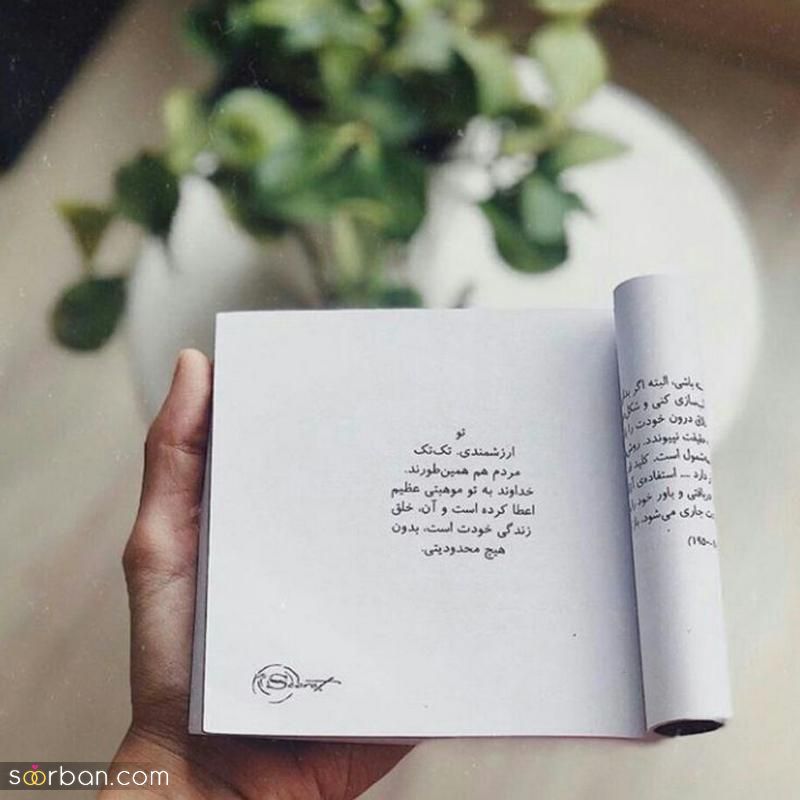 تو
ارزشمندی. تک‌تک
مردم هم همین‌طورند.
خداوند به تو موهبتی عظیم
اعطا کرده است و آن، خلق
زندگی خودت است، بدون
هیچ محدودیتی.
Secret
باشی، البته اگر
سازی کنی و
درون خودت را
حقیقت نپیوندد. روش
است. کلید
دارد ... استفاده‌ی
دریافتی و باور خود را
جاری می‌شود.
soorban.com